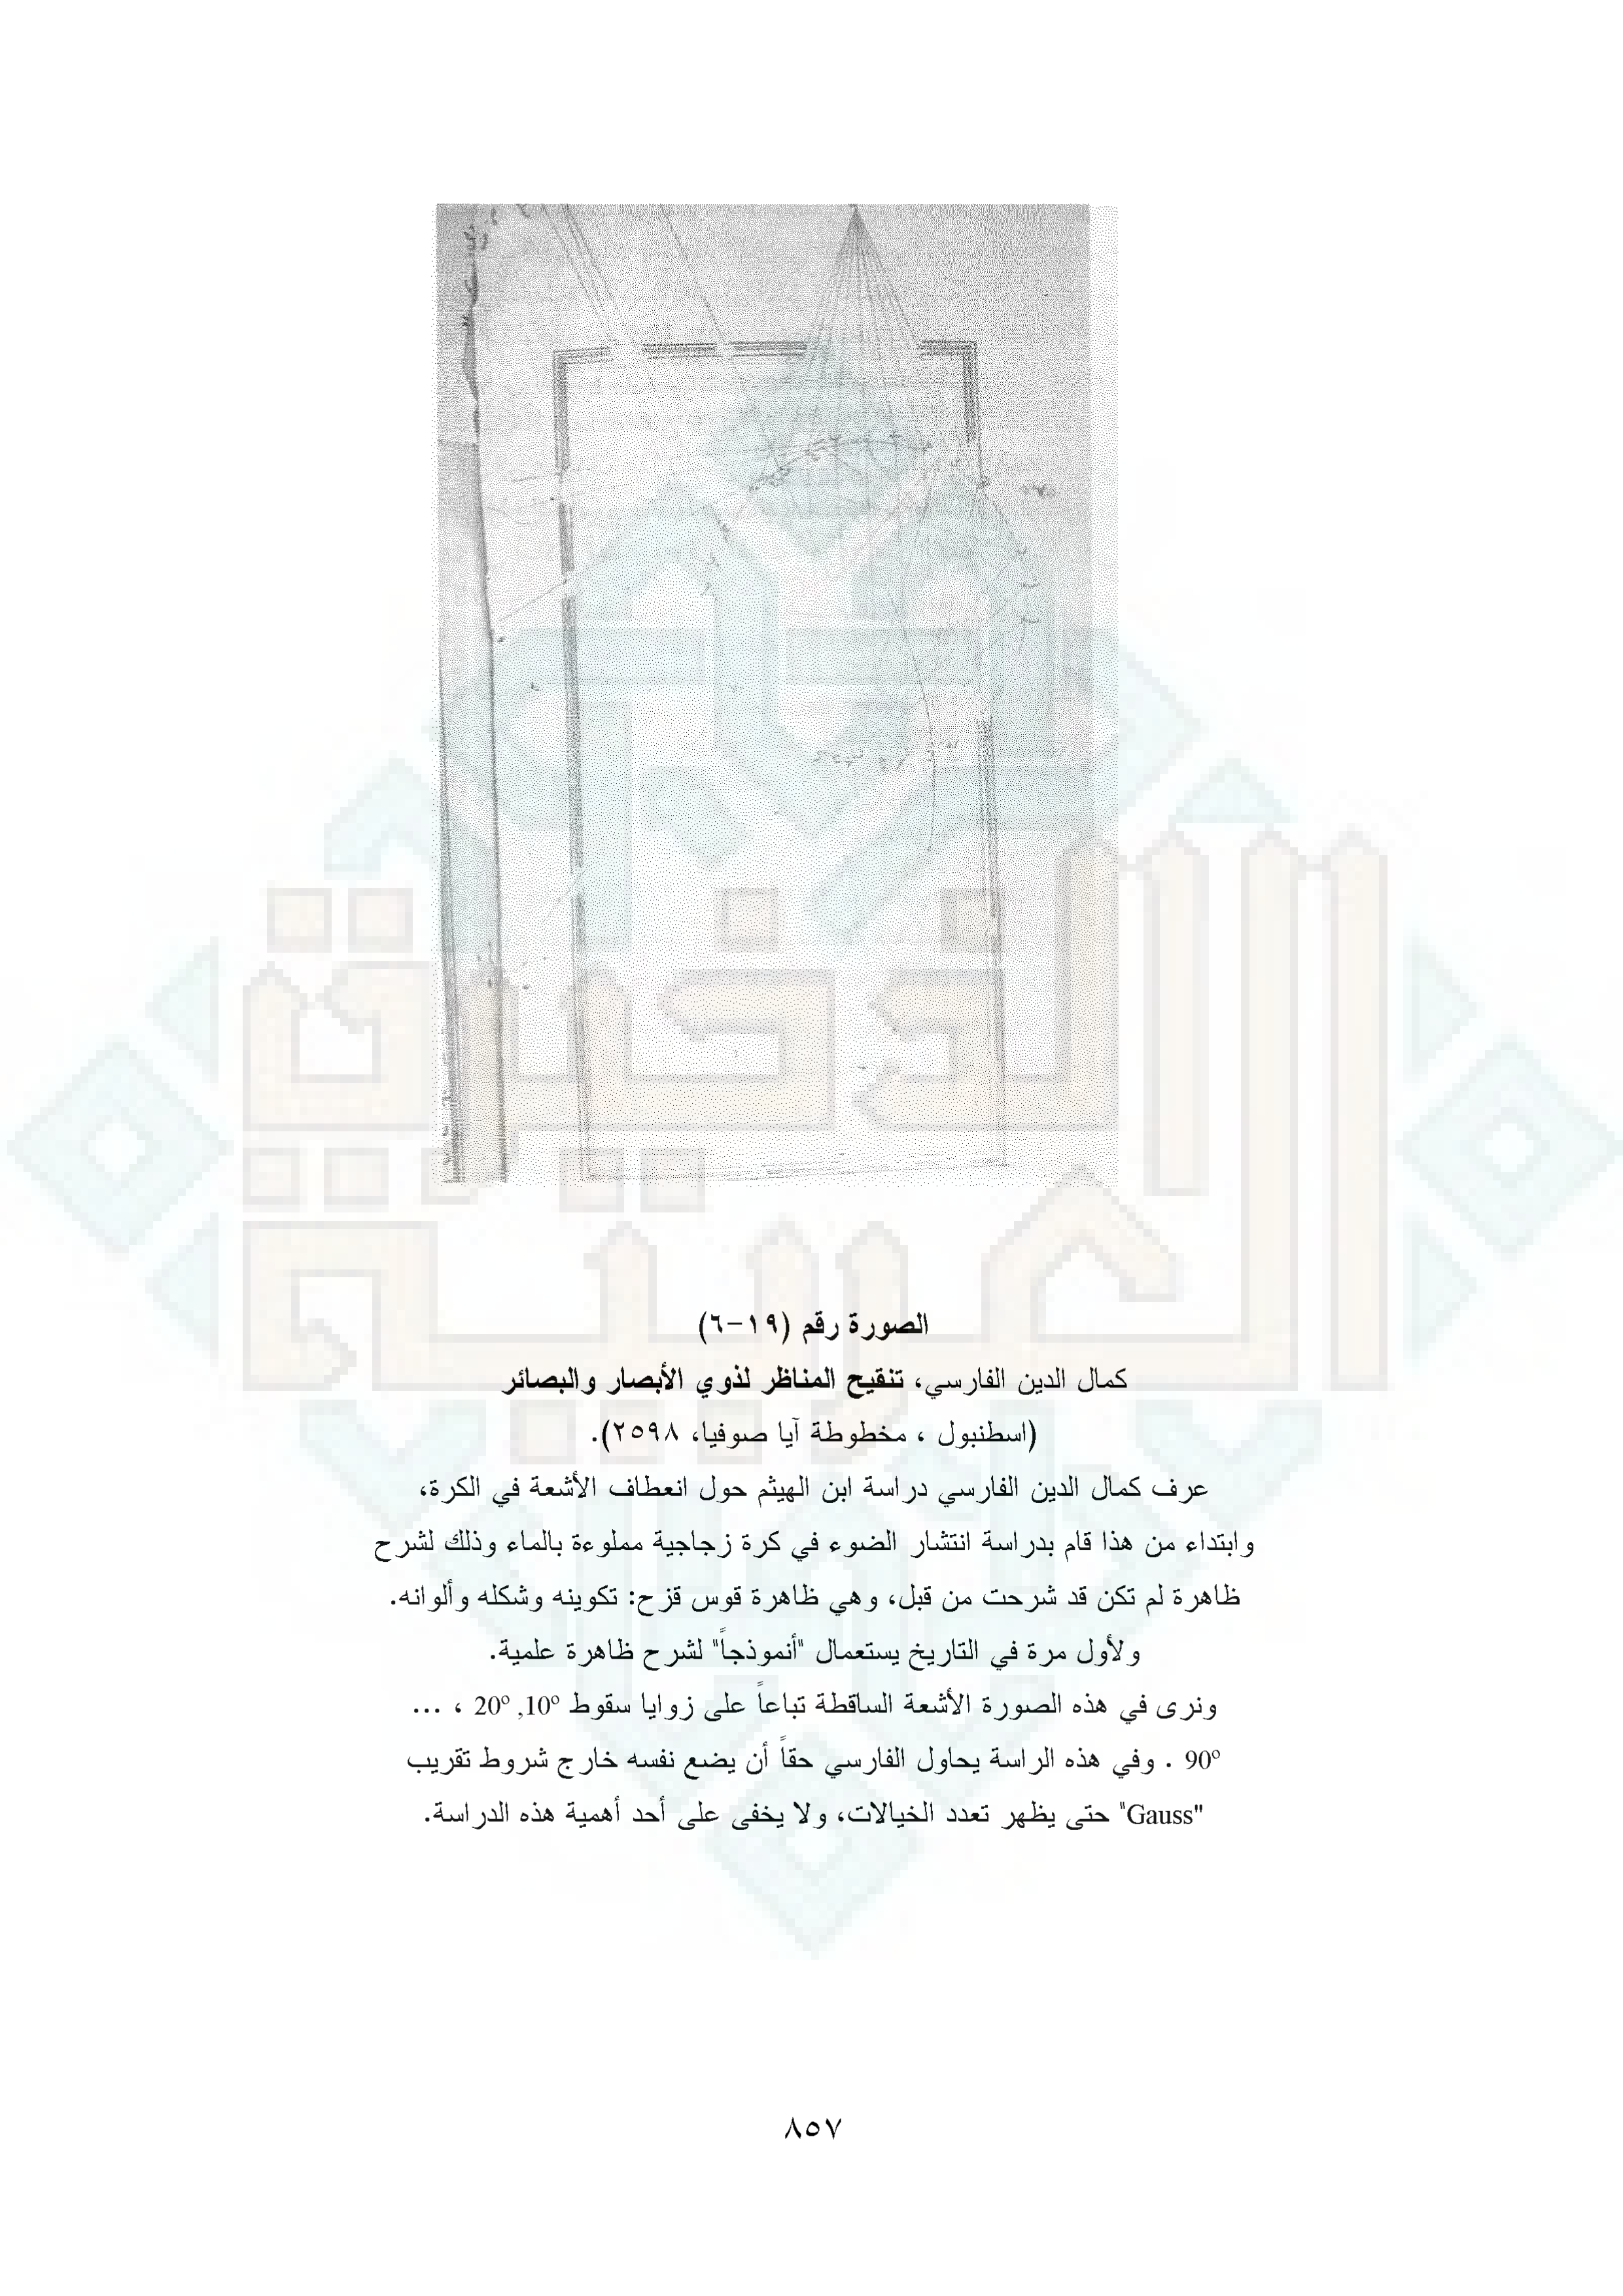 الصورة رقم (١٩-٦)
كمال الدين الفارسي، تنقيح المناظر لذوي الأبصار والبصائر
(اسطنبول ، مخطوطة آيا صوفيا، ٢٥٩٨).
عرف كمال الدين الفارسي دراسة ابن الهيثم حول انعطاف الأشعة في الكرة،
وابتداء من هذا قام بدراسة انتشار الضوء في كرة زجاجية مملوءة بالماء وذلك لشرح
ظاهرة لم تكن قد شرحت من قبل، وهي ظاهرة قوس قزح: تكوينه وشكله وألوانه.
ولأول مرة في التاريخ يستعمال "أنموذجاً" لشرح ظاهرة علمية.
ونرى في هذه الصورة الأشعة الساقطة تباعاً على زوايا سقوط 10º, 20º ، ...
90º . وفي هذه الراسة يحاول الفارسي حقاً أن يضع نفسه خارج شروط تقريب
"Gauss" حتى يظهر تعدد الخيالات، ولا يخفى على أحد أهمية هذه الدراسة.
٨٥٧
الذخيرة
العربية